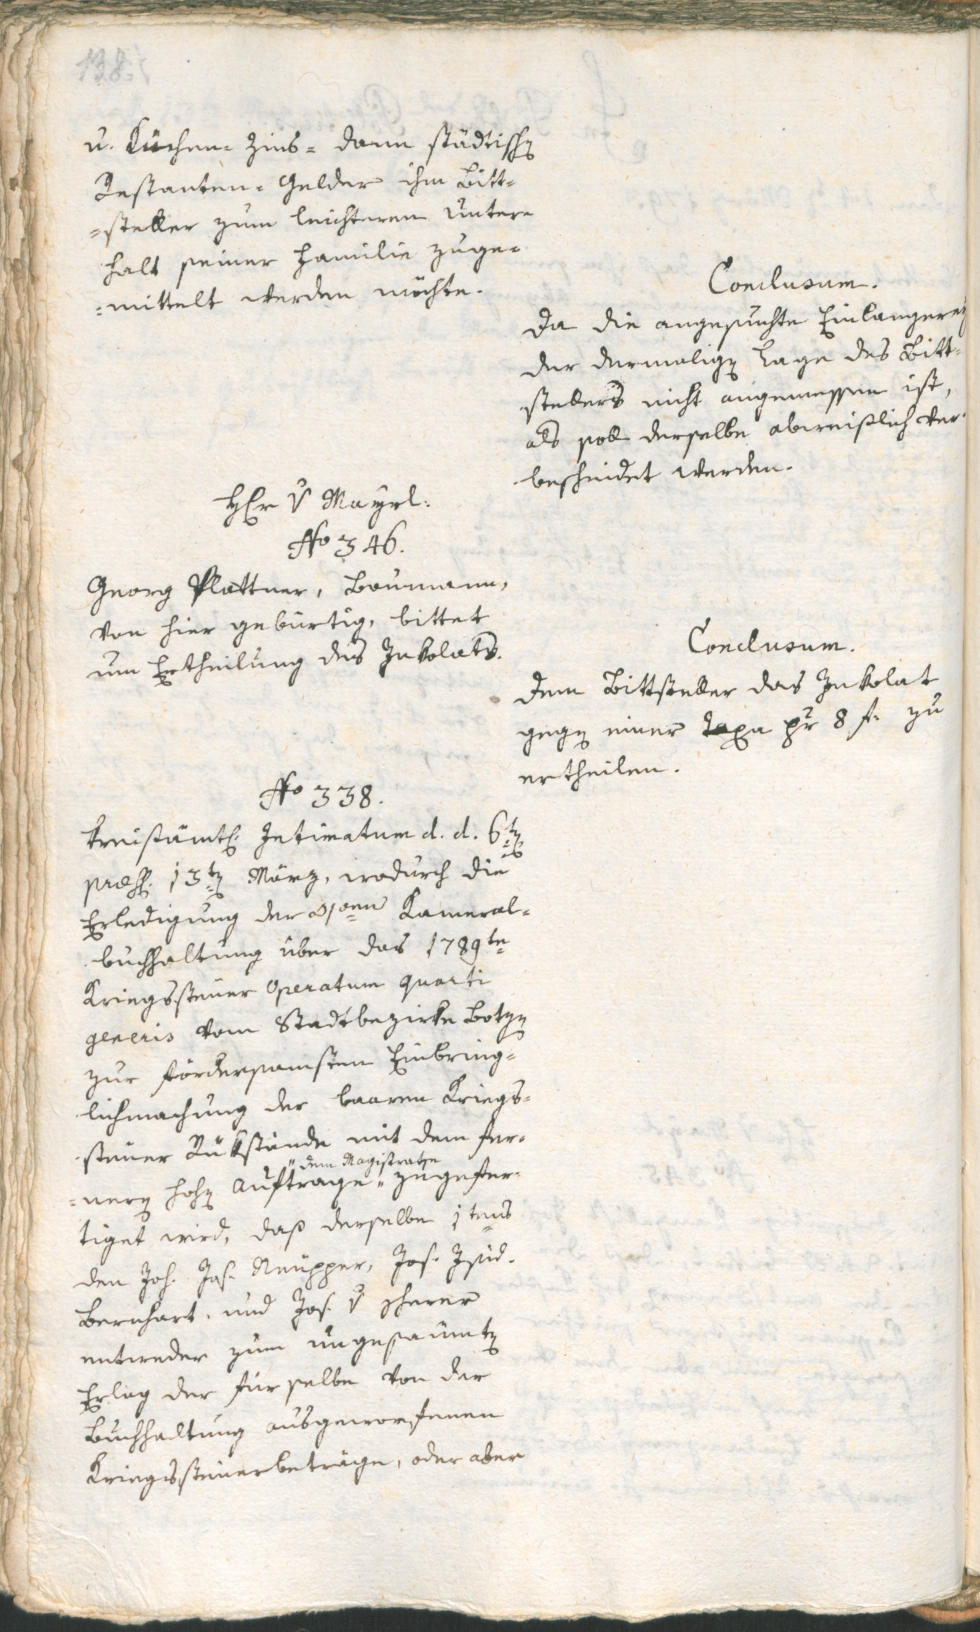 u. Kuchen- Zins- dann städtischen
Restanten-Gelder ihm Bitt-
=steller zum leichteren Unter-
halt seiner Familie zuge-
=mittelt werden möchte.
Conclusum.
Da die angesuchte Einlangerey
der dermaligen Lage des Bitt-
stellers nicht angemessen ist,
als soll derselbe abweißlich ver-
beschiedet werden.
Hr v Mayrl:
No 346.
Georg Plattner, Baumann,
von hier gebürtig, bittet
um Ertheilung des Inkolats.
Conclusum.
Dem Bittsteller das Inkolat
gegen einer Taxa pr 8 f. zu
ertheilen.
No 338.
kreisämtl. Intimatum d. d. 6ten
præs. 13ten März, wodurch die
Erledigung der Kameral-
buchhaltung über das 1789te
Kriegssteuer Operatum quarti
generis vom Stadtbezirke Botzen
zur fördersamsten Einbring-
lichmachung der baaren Kriegs-
steuer Rükstände mit dem fer-
=neren hohen Auftrage "dem Magistrate" zugefer-
tiget wird, daß derselbe 1tens
den Joh. Jos. Neupper, Jos. Isid.
Bernhart, und Jos. v Scherer
entweder zum ungesäumten
Erlag der für selbe von der
Buchhaltung ausgeworfenen
Kriegssteuerbeträge, oder aber